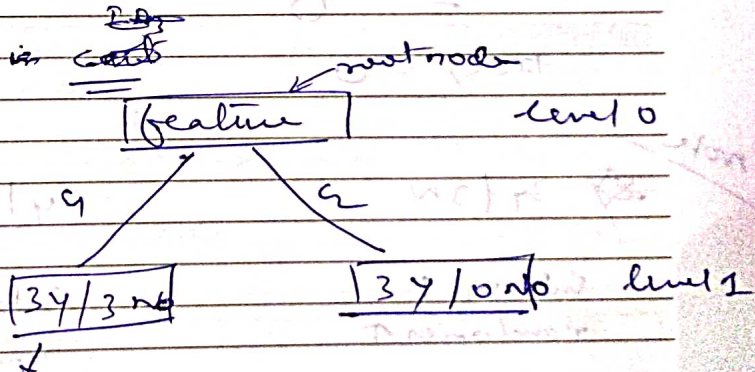 ID3
in
root node
feature
level 0
C1 C2
3Y/3 No 3Y/0 No level 1